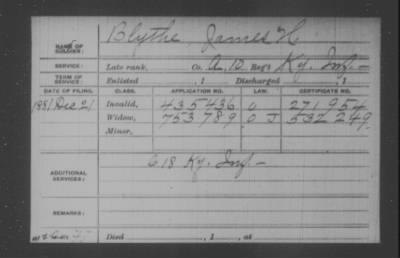 Blythe, James H
NAME OF SOLDIER:
SERVICE: Late rank, Co. A, 10 Reg't Ky. Inf. -
TERM OF SERVICE: Enlisted , 1 Discharged , 1
DATE OF FILING. CLASS. APPLICATION NO. LAW. CERTIFICATE NO.
1881 Dec 21 Invalid, 435436 O 271954
Widow, 753789 O J 532249
Minor,
C 18 Ky. Inf -
ADDITIONAL SERVICES:
REMARKS:
Died , 1 , at